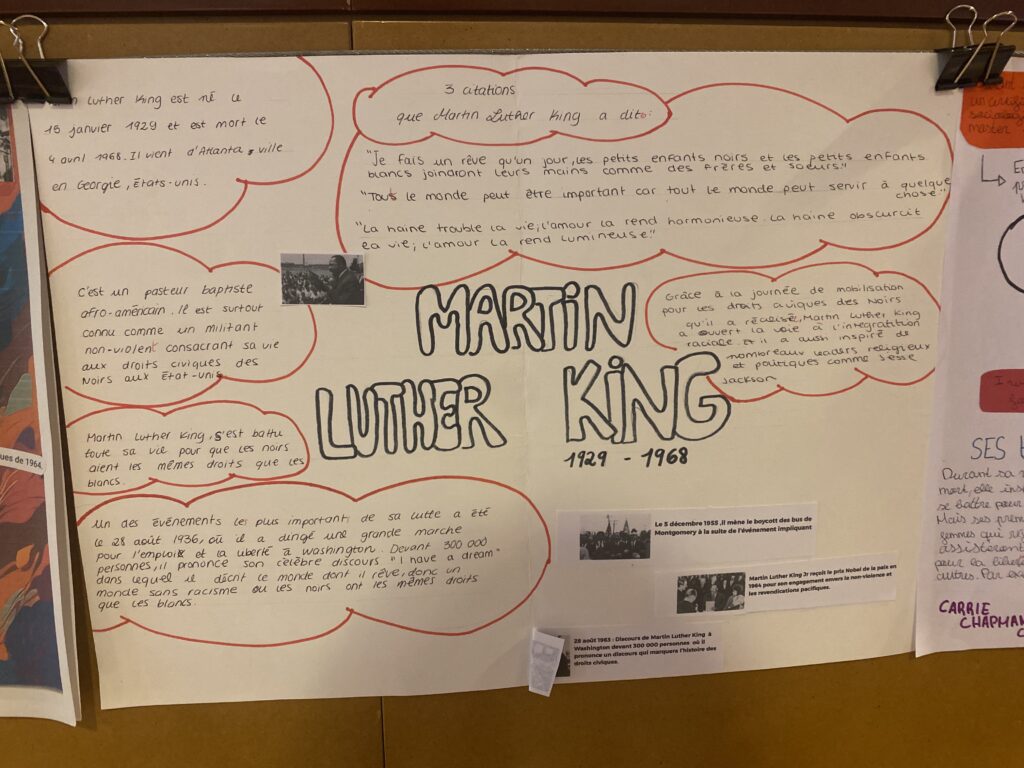 Luther King est né le
15 janvier 1929 et est mort le
4 avril 1968. Il vient d'Atlanta, ville
en Georgie, États-unis.
3 citations
que Martin Luther King a dito:
"Je fais un rêve qu'un jour, les petits enfants noirs et les petits enfants
blancs joindront leurs mains comme des frères et soeurs."
"Tout le monde peut être important car tout le monde peut servir à quelque
chose"
"La haine trouble la vie; l'amour la rend harmonieuse. La haine obscurcit
la vie; l'amour la rend lumineuse."
C'est un pasteur baptiste
afro-américain. Il est surtout
connu comme un militant
non-violent consacrant sa vie
aux droits civiques des
Noirs aux État-unis
Martin Luther King, s'est battu
toute sa vie pour que les noirs
aient les mêmes droits que les
blancs.
Un des événements les plus important de sa lutte a été
le 28 août 1936, où il a dirigé une grande marche
pour l'emploi et la liberté à Washington. Devant 300 000
personnes, il prononcé son célèbre discours "I have a dream"
dans lequel il décrit ce monde dont il rêve, donc un
monde sans racisme ou les noirs ont les mêmes droits
que les blancs.
MARTiN
LUTHER KiNG
1929 - 1968
Grâce à la journée de mobilisation
pour les droits civiques des Noirs
qu'il a réalisé, Martin Luther King
a ouvert la voie à l'integratition
raciale et il a aussi inspiré de
nombreaux leaders religieux
et politiques comme Jesse
Jackson
Le 5 décembre 1955 ,il mène le boycott des bus de
Montgomery à la suite de l'événement impliquant
Martin Luther King Jr reçoit le prix Nobel de la paix en
1964 pour son engagement envers la non-violence et
les revendications pacifiques.
28 août 1963 : Discours de Martin Luther King à
Washington devant 300 000 personnes où il
prononce un discours qui marquera l'histoire des
droits civiques.
ques de 1964.
master
SES
Durant sa
mort, elle
se battre pour
Mais ses
femmes qui
assisteront
pour la
autres. Par
CARRIE
CHAPMAN